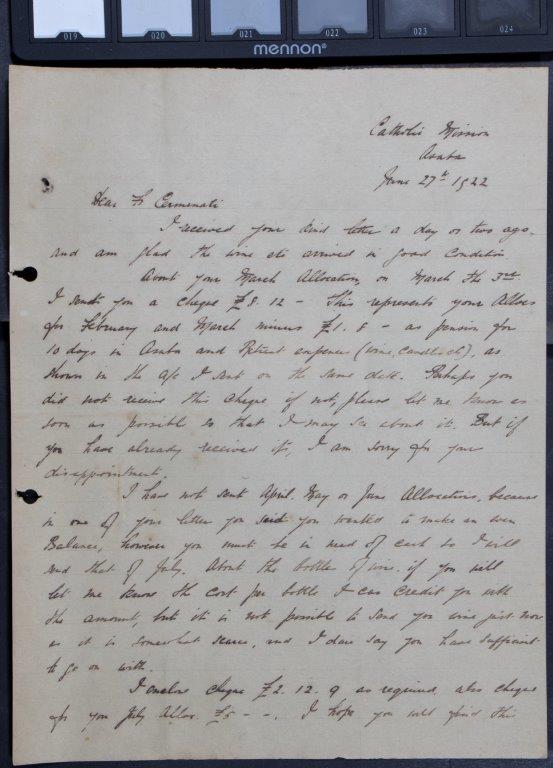 019 020 021 022 023 024
mennon®
Catholic Mission
Asaba
June 27th 1922
Dear Fr Cermenati
I received your kind letter a day or two ago.
and am glad the wine etc arrived in good condition
About your March Allocation, on March the 3rd
I sent you a cheque £8. 12 - This represents your Allocs
for February and March minus £1. 8 - as pension for
10 days in Asaba and Retreat expenses (wine, candles etc), as
shown in the a/c I sent on the same date. Perhaps you
did not receive this cheque if not, please let me know as
soon as possible so that I may see about it. But if
you have already received it, I am sorry for your
disappointment.
I have not sent April. May or June Allocations, because
in one of your letter you said you wanted to make an even
Balance, however you must be in need of cash so I will
send that of July. About the bottle of wine. if you will
let me know the cost per bottle I can credit you with
the amount, but it is not possible to send you wine just now
as it is somewhat scarce, and I dare say you have sufficient
to go on with.
I enclose cheque £2. 12. 9 as required, also cheque
for you July Alloc. £5 - -. I hope you will find this